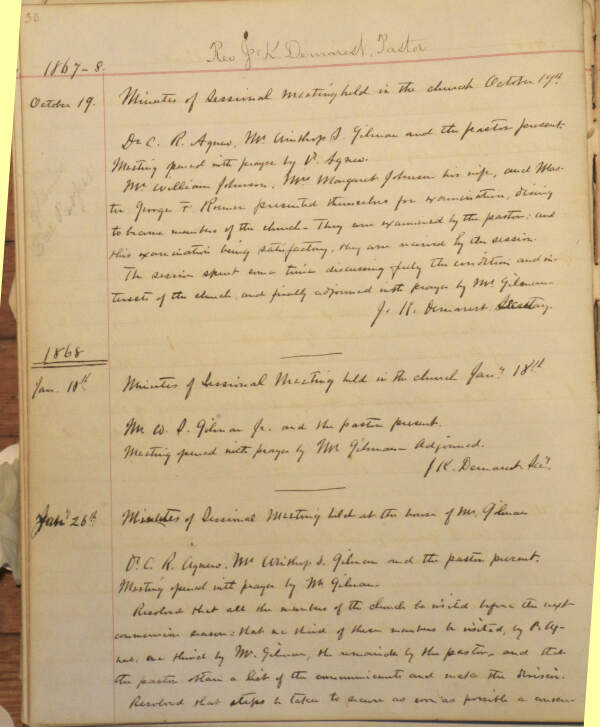 30
Rev J. K. Demarest, Pastor
1867-8.
October 19. Minutes of Sessional Meeting held in the church October 19th
Dr C. R. Agnew, Mr Winthrop S. Gilman and the pastor present.
Meeting opened with prayer by Dr. Agnew.
Mr William Johnson, Mrs Margaret Johnson his wife, and Mas-
ter George F. Roemer presented themselves for examination, desiring
to become members of the church - They were examined by the pastor; and
this examination being satisfactory, they were received by the session.
The session spent some time discussing fully the condition and in-
terests of the church, and finally adjourned with prayer by Mr Gilman -
J. K. Demarest. Secretary.
1868
Jan. 18th Minutes of Sessional Meeting held in the church Jany 18th
Mr W. S. Gilman Jr. and the pastor present.
Meeting opened with prayer by Mr Gilman - Adjourned.
J K. Demarest Secy.
Jany 26th Minutes of Sessional Meeting held at the house of Mr. Gilman
Dr C. R. Agnew, Mr Winthrop S. Gilman and the pastor present.
Meeting opened with prayer by Mr Gilman -
Resolved that all the members of the church be visited before the next
communion season: that one third of these members be visited, by Dr. Ag-
new; one third by Mr. Gilman, the remainder by the pastor, and that
the pastor obtain a list of the communicants and make the division.
Resolved that steps be taken to secure as soon as possible a